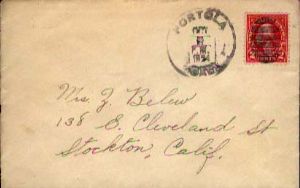 PORTOLA
1934
Mrs. J. Belew
138 E. Cleveland St
Stockton, Calif.